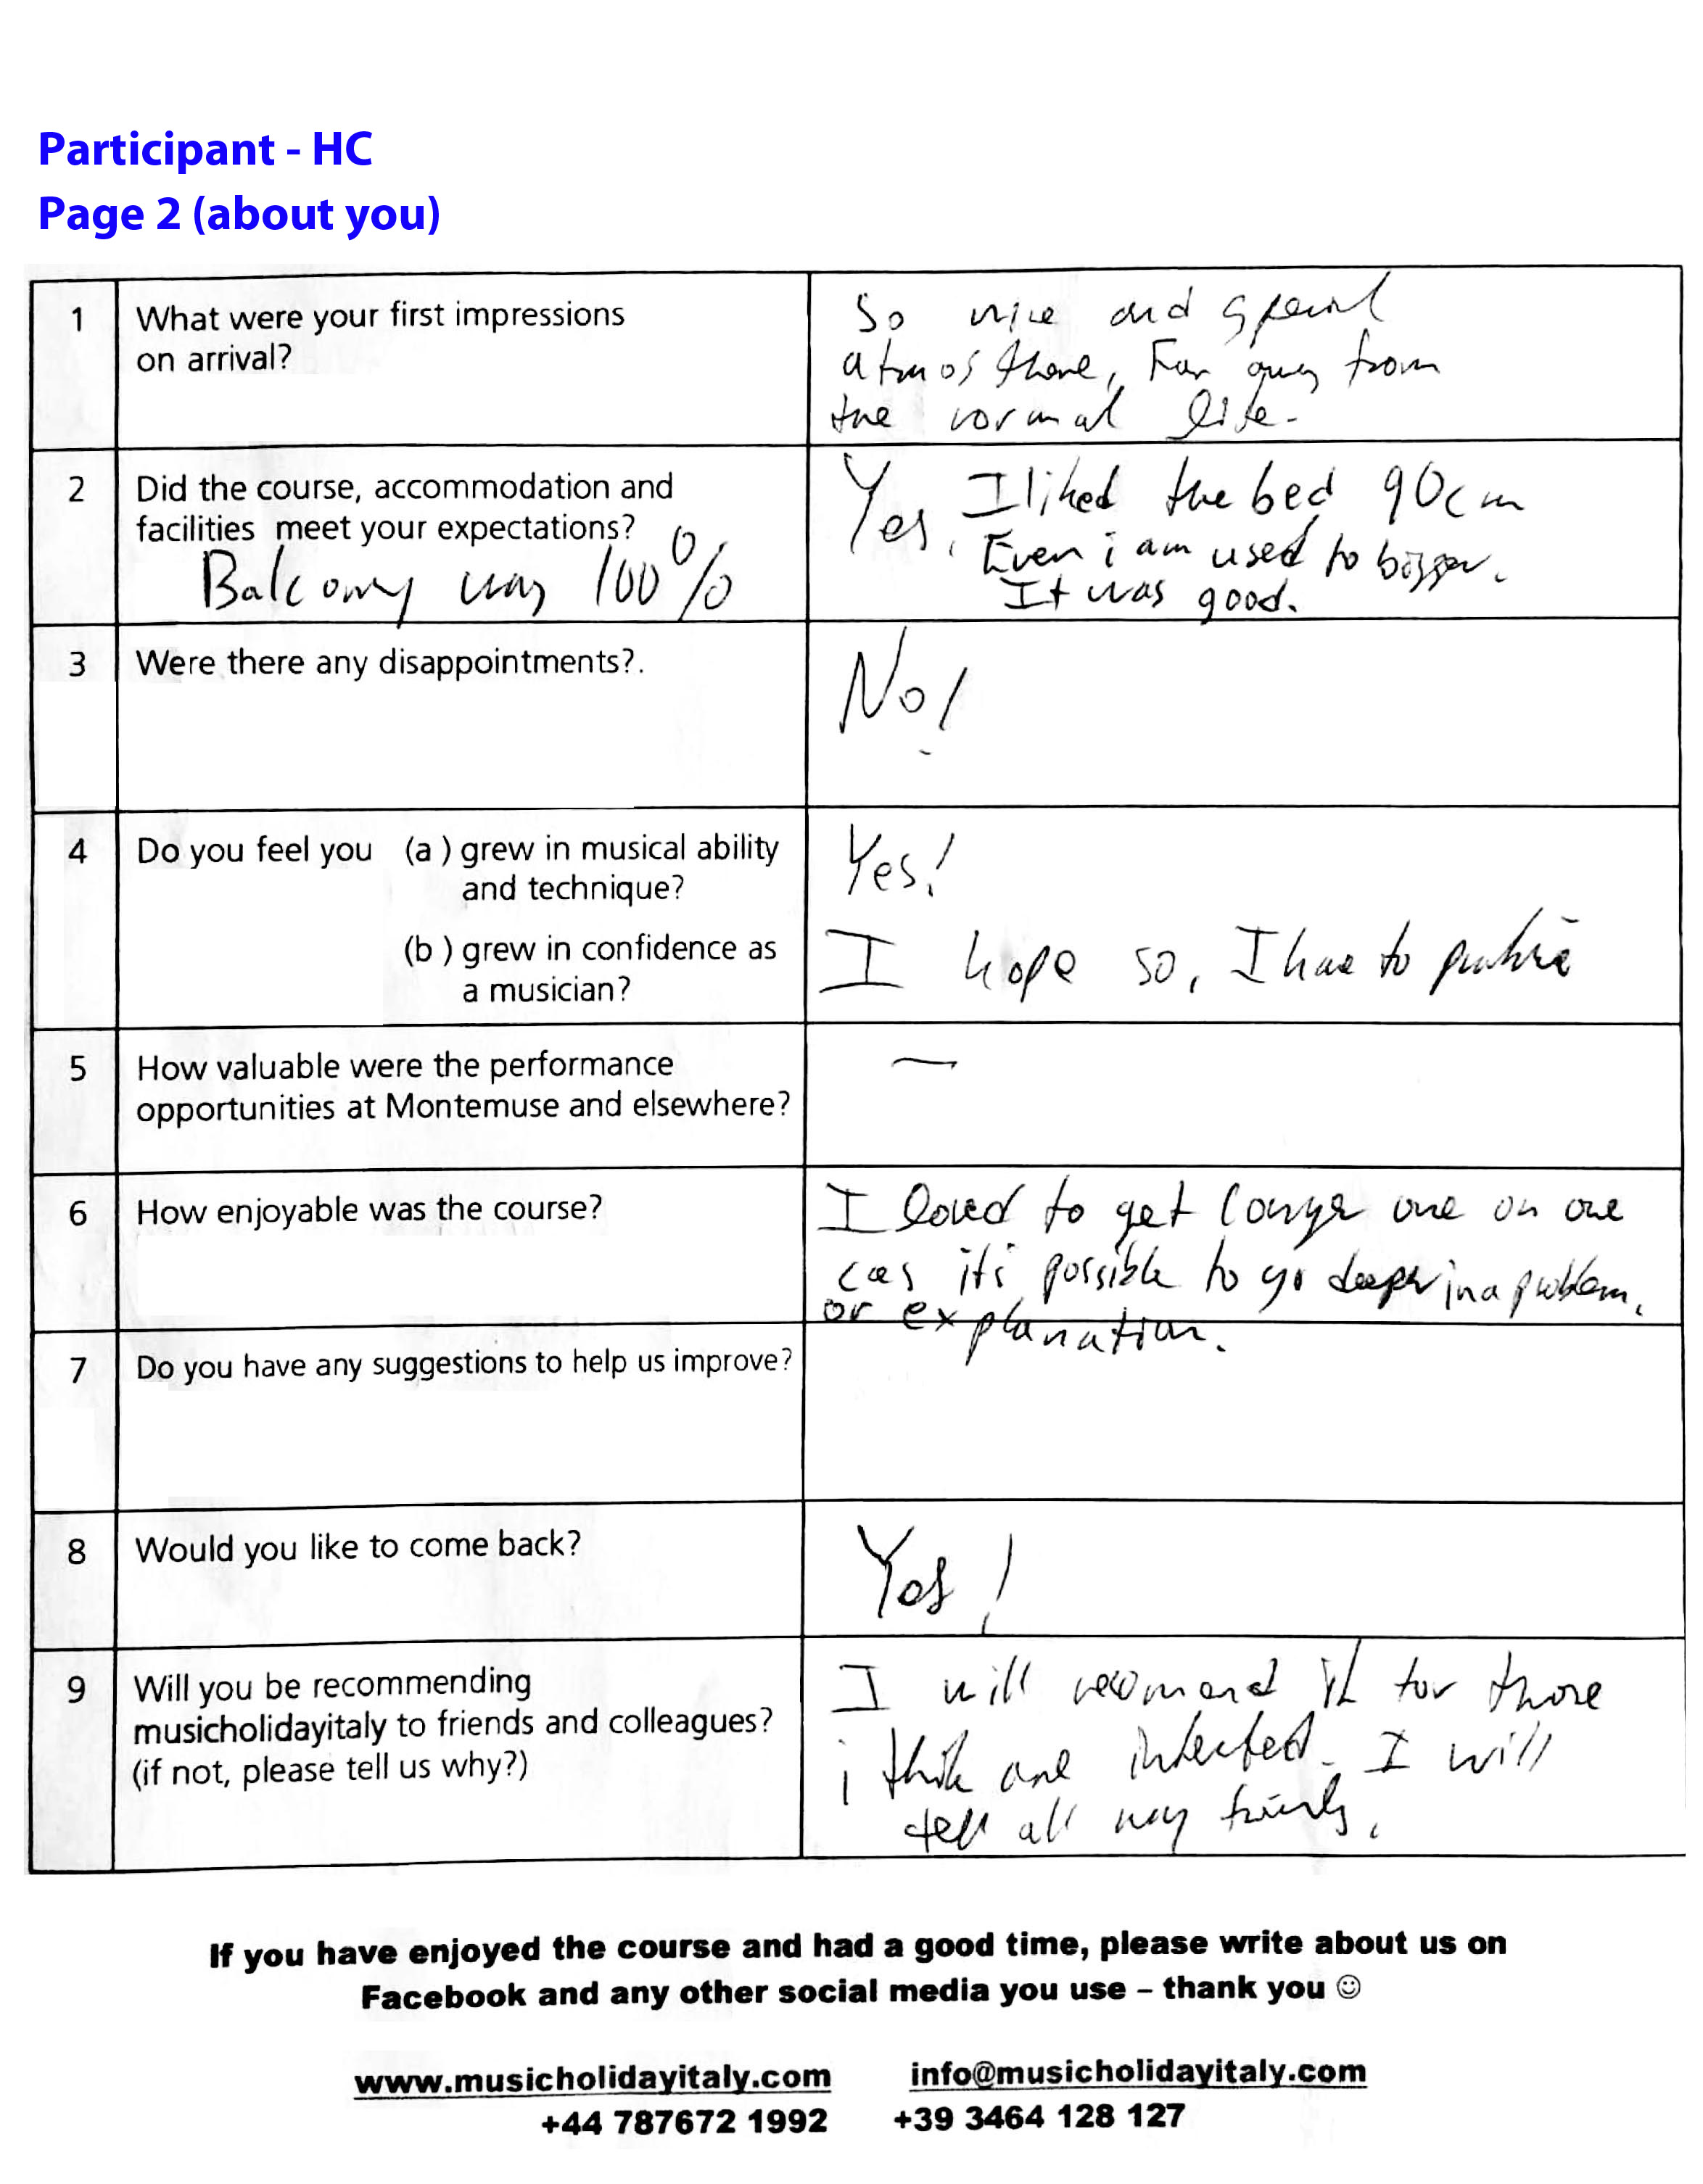 Participant - HC
Page 2 (about you)
1 What were your first impressions
on arrival?
So nice and special
atmosphere, Far away from
the normal life.
2 Did the course, accommodation and
facilities meet your expectations?
Balcony was 100%
Yes, I liked the bed 90cm
Even i am used to bigger.
It was good.
3 Were there any disappointments?.
No!
4 Do you feel you (a ) grew in musical ability
and technique?
Yes!
(b ) grew in confidence as
a musician?
I hope so, I have to practice
5 How valuable were the performance
opportunities at Montemuse and elsewhere?
—
6 How enjoyable was the course?
I loved to get longer one on one
cas it's possible to go deeper in a problem.
or explanation.
7 Do you have any suggestions to help us improve?
8 Would you like to come back?
Yes!
9 Will you be recommending
musicholidayitaly to friends and colleagues?
(if not, please tell us why?)
I will recomand it for those
i think are interested. I will
tell all my friends.
If you have enjoyed the course and had a good time, please write about us on
Facebook and any other social media you use – thank you ☺
www.musicholidayitaly.com info@musicholidayitaly.com
+44 787672 1992 +39 3464 128 127